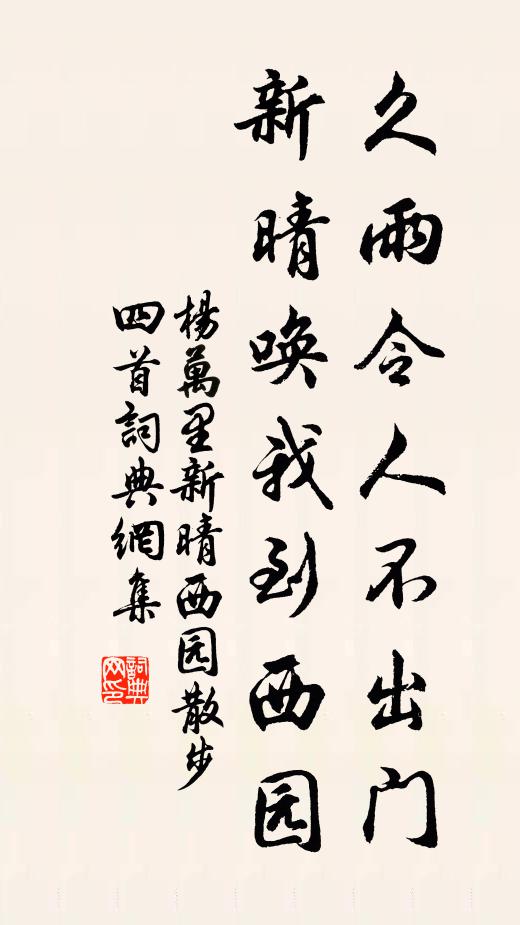 久雨令人不出门
新晴唤我到西园
楊萬里新晴西园散步
四首詞典網集
詞典网印